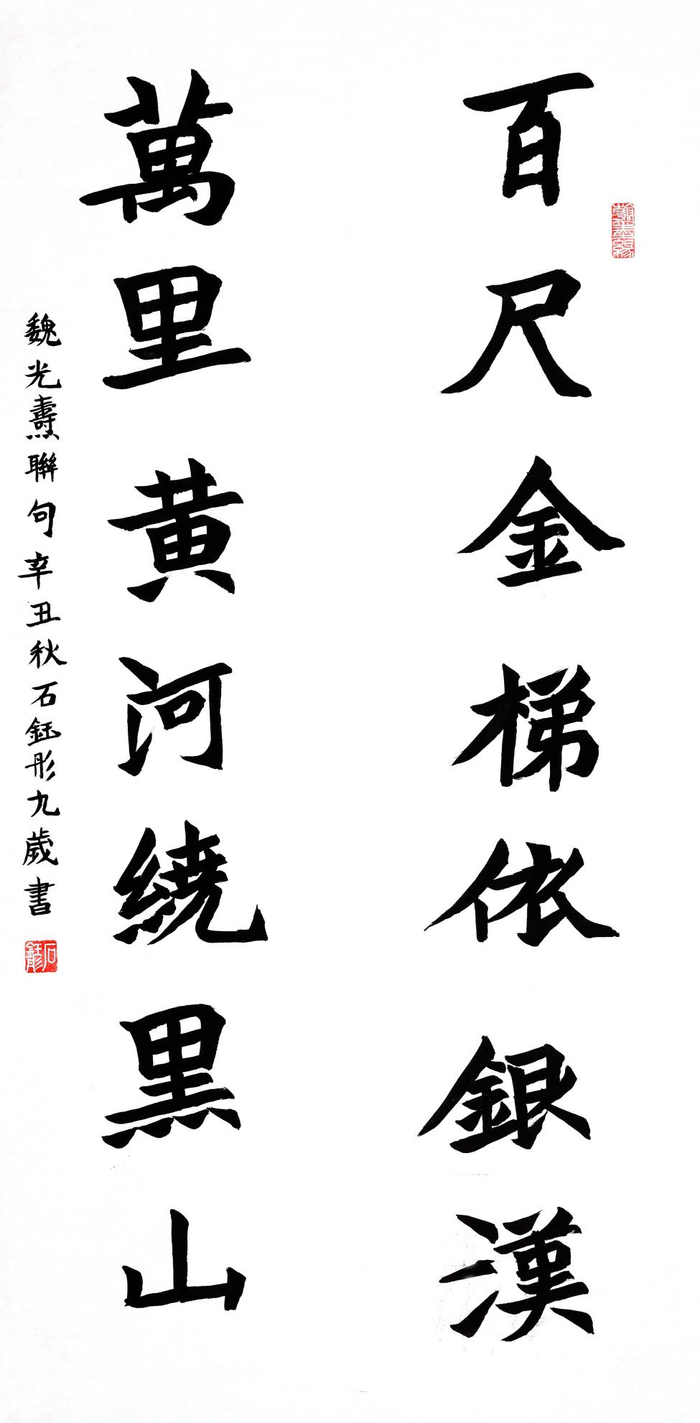 百尺金梯依銀漢
萬里黄河繞黑山
魏光燾聯句辛丑秋石鈺彤九歲書